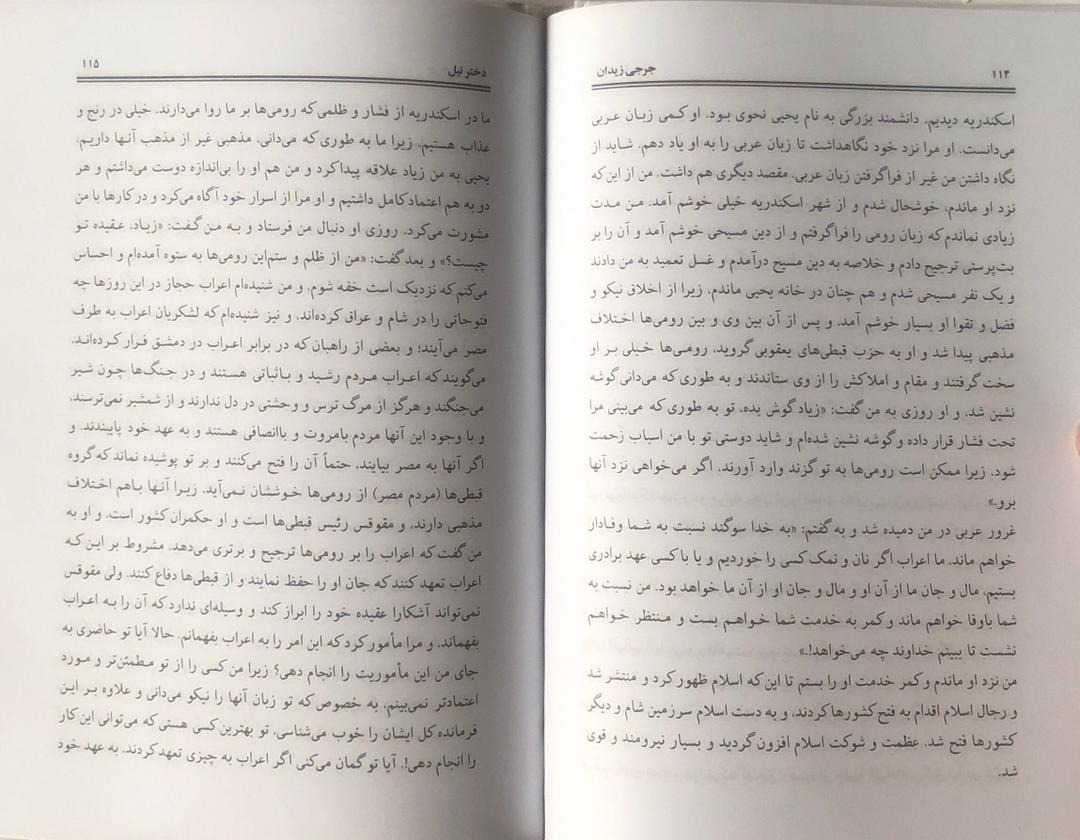 ۱۱۴
جرجی زیدان
اسکندریه دیدیم. دانشمند بزرگی به نام یحیی نحوی بود. او کمی زبان عربی
می‌دانست. او مرا نزد خود نگاهداشت تا زبان عربی را به او یاد دهم. شاید از
نگاه داشتن من غیر از فراگرفتن زبان عربی. مقصد دیگری هم داشت. من از این‌که
نزد او ماندم. خوشحال شدم و از شهر اسکندریه خیلی خوشم آمد. من مدت
زیادی نماندم که زبان رومی را فراگرفتم و از دین مسیحی خوشم آمد و آن را بر
بت‌پرستی ترجیح دادم و خلاصه به دین مسیح درآمدم و غسل تعمید به من دادند
و یک نفر مسیحی شدم و هم چنان در خانه یحیی ماندم. زیرا از اخلاق نیکو و
فضل و تقوا او بسیار خوشم آمد، و پس از آن بین وی و بین رومی‌ها اختلاف
مذهبی پیدا شد و او به حزب قبطی‌های یعقوبی گروید، رومی‌ها خیلی بر او
سخت گرفتند و مقام و املاکش را از وی ستاندند و به طوری که می‌دانی گوشه
نشین شد. و او روزی به من گفت: «زیاد گوش بده. تو به طوری که می‌بینی مرا
تحت فشار قرار داده و گوشه نشین شده‌ام و شاید دوستی تو با من اسباب زحمت
شود. زیرا ممکن است رومی‌ها به تو گزند وارد آورند. اگر می‌خواهی نزد آنها
برو.»
غرور عربی در من دمیده شد و به گفتم: «به خدا سوگند نسبت به شما وفادار
خواهم ماند. ما اعراب اگر نان و نمک کسی را خوردیم و یا با کسی عهد برادری
بستیم، مال و جان ما از آن او و مال و جان او از آن ما خواهد بود. من نسبت به
شما باوفا خواهم ماند و کمر به خدمت شما خواهم بست و منتظر خواهم
نشست تا ببینم خداوند چه می‌خواهد!.»
من نزد او ماندم و کمر خدمت او را بستم تا این‌که اسلام ظهور کرد و منتشر شد
و رجال اسلام اقدام به فتح کشورها کردند، و به دست اسلام سرزمین شام و دیگر
کشورها فتح شد. عظمت و شوکت اسلام افزون گردید و بسیار نیرومند و قوی
شد.
دختر نیل
۱۱۵
ما در اسکندریه از فشار و ظلمی که رومی‌ها بر ما روا می‌دارند. خیلی در رنج و
عذاب هستیم. زیرا ما به طوری که می‌دانی. مذهبی غیر از مذهب آنها داریم.
یحیی به من زیاد علاقه پیدا کرد و من هم او را بی‌اندازه دوست می‌داشتم و هر
دو به هم اعتماد کامل داشتیم و او مرا از اسرار خود آگاه می‌کرد و در کارها با من
مشورت می‌کرد. روزی او دنبال من فرستاد و به من گفت: «زیاد، عقیده تو
چیست؟» و بعد گفت: «من از ظلم و ستم‌این رومی‌ها به ستوه آمده‌ام و احساس
می‌کنم که نزدیک است خفه شوم. و من شنیده‌ام اعراب حجاز در این روزها چه
فتوحاتی را در شام و عراق کرده‌اند، و نیز شنیده‌ام که لشکریان اعراب به طرف
مصر می‌آیند؛ و بعضی از راهبان که در برابر اعراب در دمشق فرار کرده‌اند.
می‌گویند که اعراب مردم رشید و باثباتی هستند و در جنگ‌ها چون شیر
می‌جنگند و هرگز از مرگ ترس و وحشتی در دل ندارند و از شمشیر نمی‌ترسند،
و با وجود این آنها مردم بامروت و باانصافی هستند و به عهد خود پایبندند. و
اگر آنها به مصر بیایند، حتماً آن را فتح می‌کنند و بر تو پوشیده نماند که گروه
قبطی‌ها (مردم مصر) از رومی‌ها خوششان نمی‌آید. زیرا آنها باهم اختلاف
مذهبی دارند. و مقوقس رئیس قبطی‌ها است و او حکمران کشور است. و او به
من گفت که اعراب را بر رومی‌ها ترجیح و برتری می‌دهد، مشروط بر این که
اعراب تعهد کنند که جان او را حفظ نمایند و از قبطی‌ها دفاع کنند. ولی مقوقس
نمی‌تواند آشکارا عقیده خود را ابراز کند و وسیله‌ای ندارد که آن را به اعراب
بفهماند، و مرا مأمور کرد که این امر را به اعراب بفهمانم. حالا آیا تو حاضری به
جای من این مأموریت را انجام دهی؟ زیرا من کسی را از تو مطمئن‌تر و مورد
اعتمادتر نمی‌بینم، به خصوص که تو زبان آنها را نیکو می‌دانی و علاوه بر این
فرمانده کل ایشان را خوب می‌شناسی، تو بهترین کسی هستی که می‌توانی این کار
را انجام دهی!. آیا تو گمان می‌کنی اگر اعراب به چیزی تعهد کردند. به عهد خود